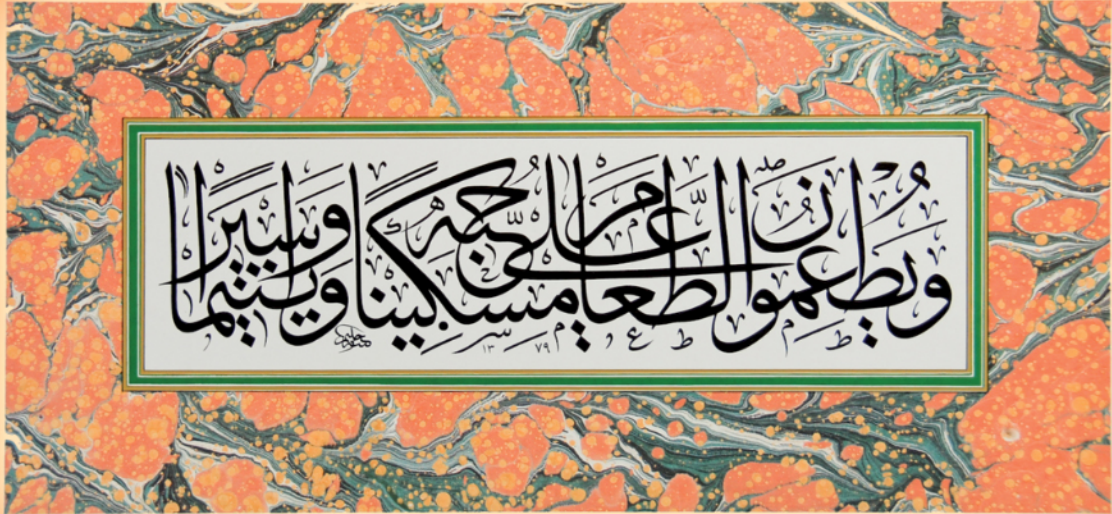 وَيُطْعِمُونَ الطَّعَامَ عَلَىٰ حُبِّهِ مِسْكِينًا وَيَتِيمًا وَأَسِيرًا
١٣٧٩